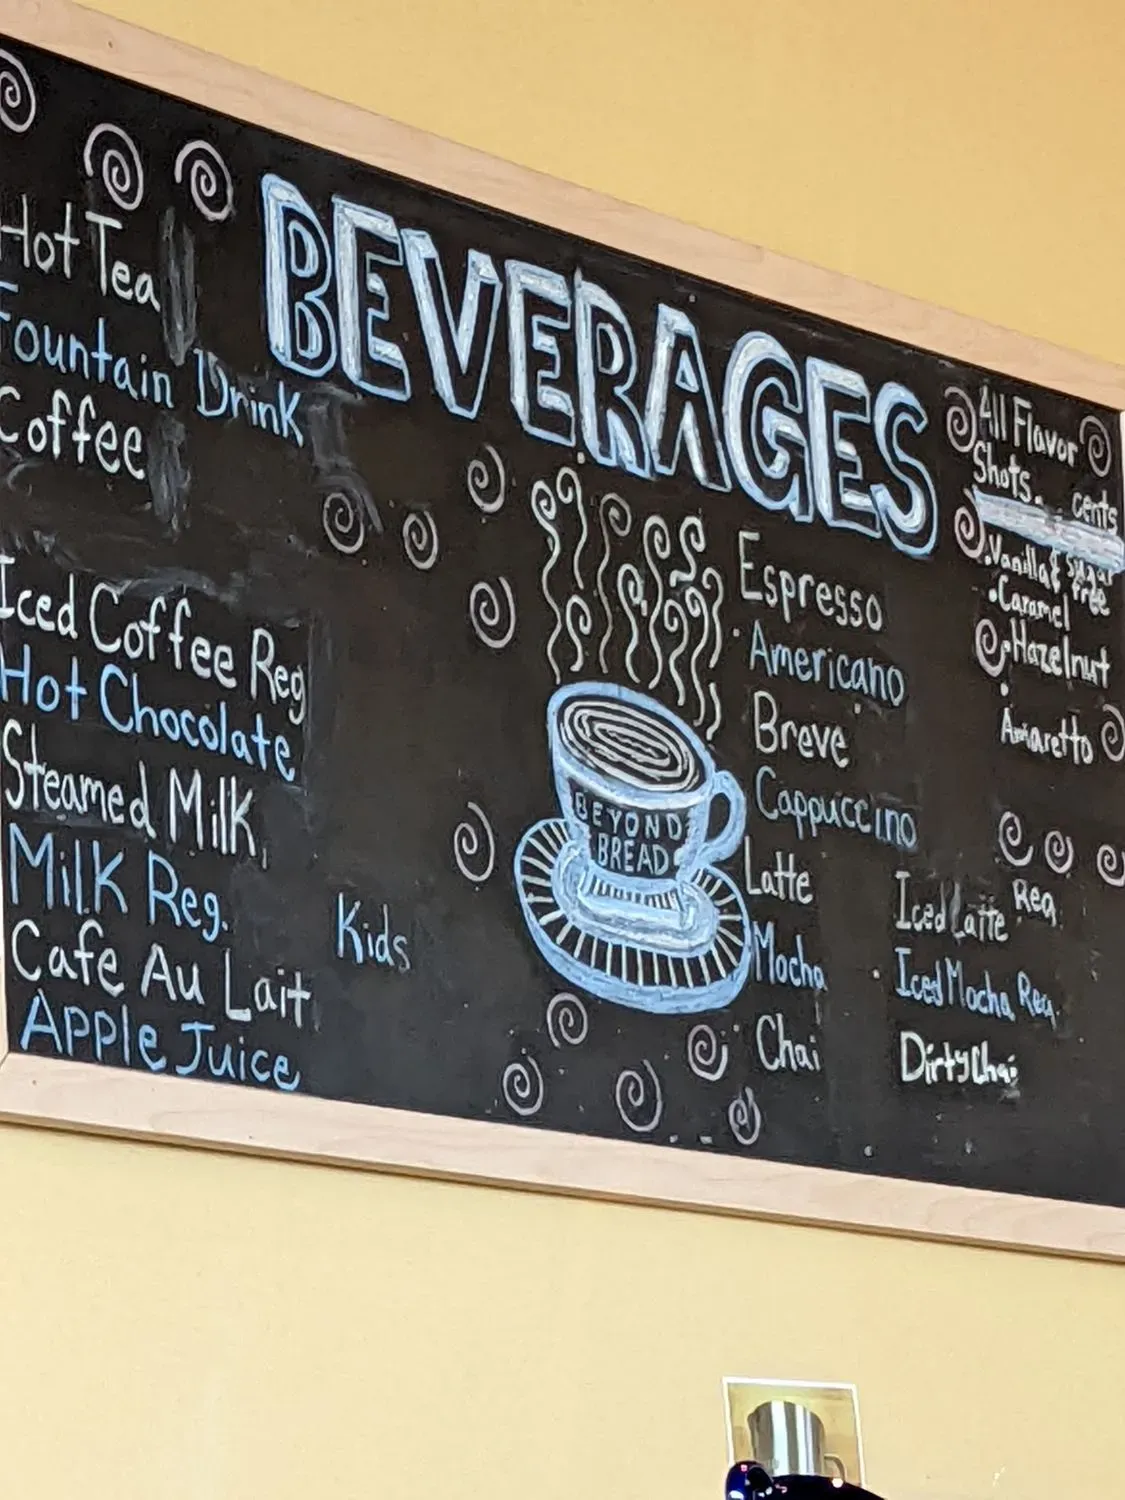 BEVERAGES
Hot Tea
Fountain Drink
Coffee
Iced Coffee Reg
Hot Chocolate
Steamed Milk
Milk Reg. Kids
Cafe Au Lait
Apple Juice
BEYOND
BREAD
Espresso
Americano
Breve
Cappuccino
Latte
Mocha
Chai
Iced Latte Reg
Iced Mocha Reg
Dirty Chai
All Flavor
Shots. cents
•Vanilla & Sugar
free
•Caramel
•Hazelnut
•Amaretto